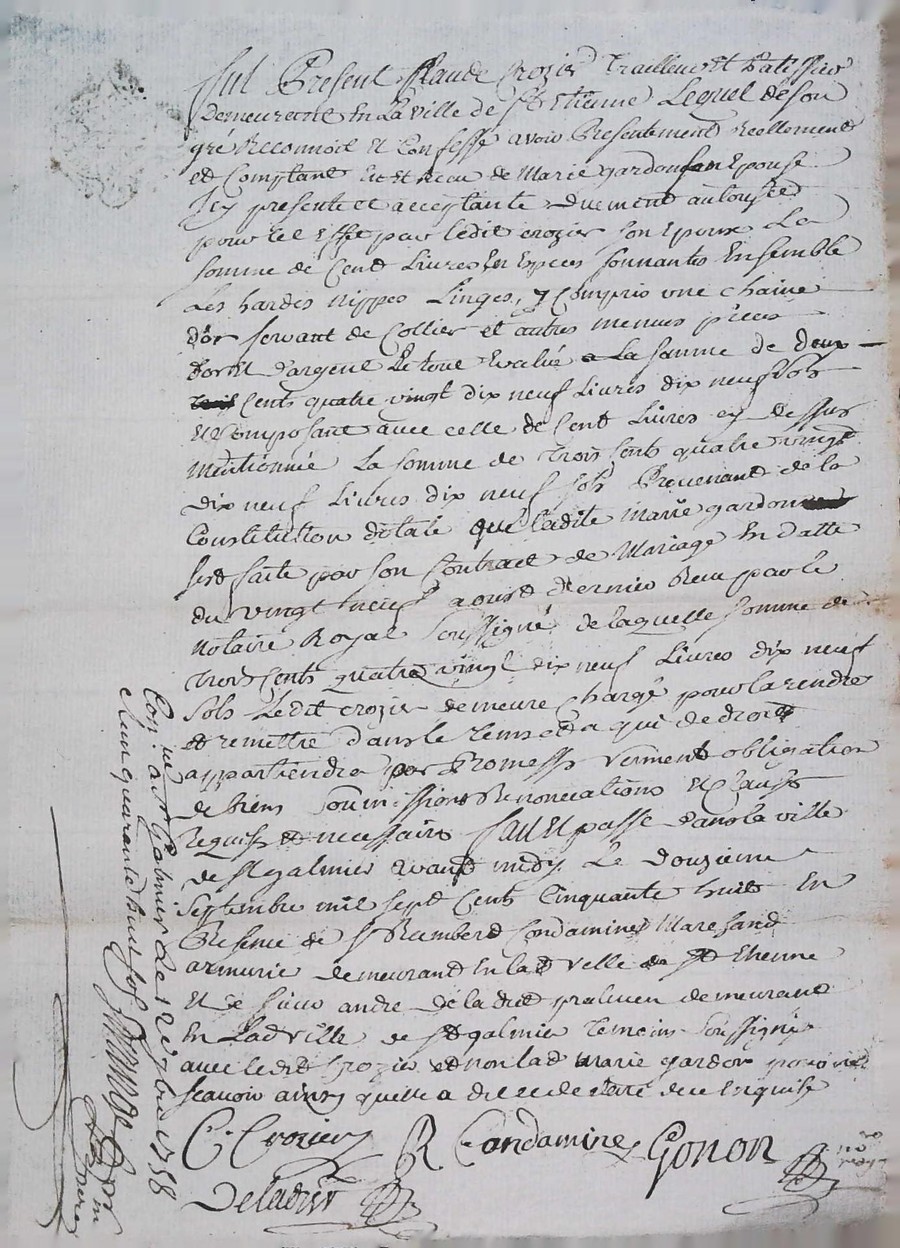 fut Present Claude Crozier Trailleur et Patissier
Demeurant En La Ville de St Etienne Lequel de son
gré Reconnoit et Confesse avoir Presentement Reellement
et Comptant Eu et Receu de Marie gardon son Epouse
Icy presente et acceptante Duement autorisée
pour cet Effet par ledit crozier son Epoux La
somme de Cent Livres En Especes sonnantes Ensemble
Les hardes Nippes Linges, y Compris une chaine
D'or servant de Collier et autres menues pieces
D'or et D'argent Le tout Evalué a La somme de deux
Cents quatre vingt dix neuf Livres dix neuf sols
et Composant avec celle de Cent Livres cy Dessus
Mentionnée La somme de Trois Cents quatre vingt
dix neuf Livres dix neuf sols Provenant de la
Constitution dotale que Ladite Marie gardon
s'est faite par son Contract de Mariage En datte
du vingt neuf aoust Dernier Receu par le
Notaire Royal soussigné de laquelle somme de
Trois Cents quatre vingt dix neuf Livres dix neuf
sols Ledit crozier demeure chargé pour la rendre
et remettre dans le tems et a qui de droit
appartiendra par Promesse serment obligation
de biens soumissions Renonciations et Clauses
requises et necessaires fait et passé dans la ville
de St galmier avant midy Le Douzieme
septembre mil sept Cent Cinquante huit En
Presence de Sr Rambert Condamine Marchand
armurier demeurant En lad Ville de St Etienne
Et de sieur andre Deladret demeurant
En Lad Ville de St galmier temoins soussignés
avec ledit Crozier et non lad Marie gardon pour ne
scavoir ainsy quelle a dit et declaré dece Enquise
C. Crozier R Condamine Gonon
Deladret
Con. ué a St Galmier Le 12 7bre 1758